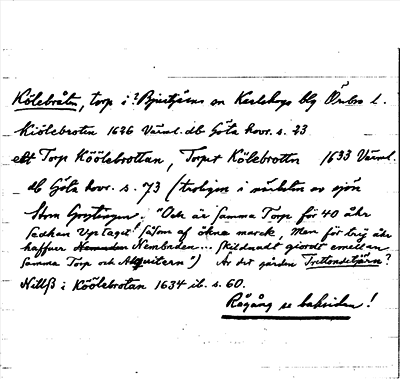 Kölebråten, torp i ? Bjurtjärns sn Karlskoga blg Örebro l.
Kiölebroten 1626 Värml. db Göta hovr. s. 23
ett Torp Köölebrottan, Torpet Kölebrottn 1633 Värml.
db Göta hovr. s. 73 (troligen i närheten av sjön
Stora : "Och är samma Torp för 40 åhr
sedhan Uptaget såsom af ökne marck, Men för tiug åhr
haffuer Nembnden... skildnadt giordt emellan
samma Torp och Alquitern") Är det gården Trettondetjärn?
Nillß i Köölebrotan 1634 ib. s. 60.
Rågång se baksidan!